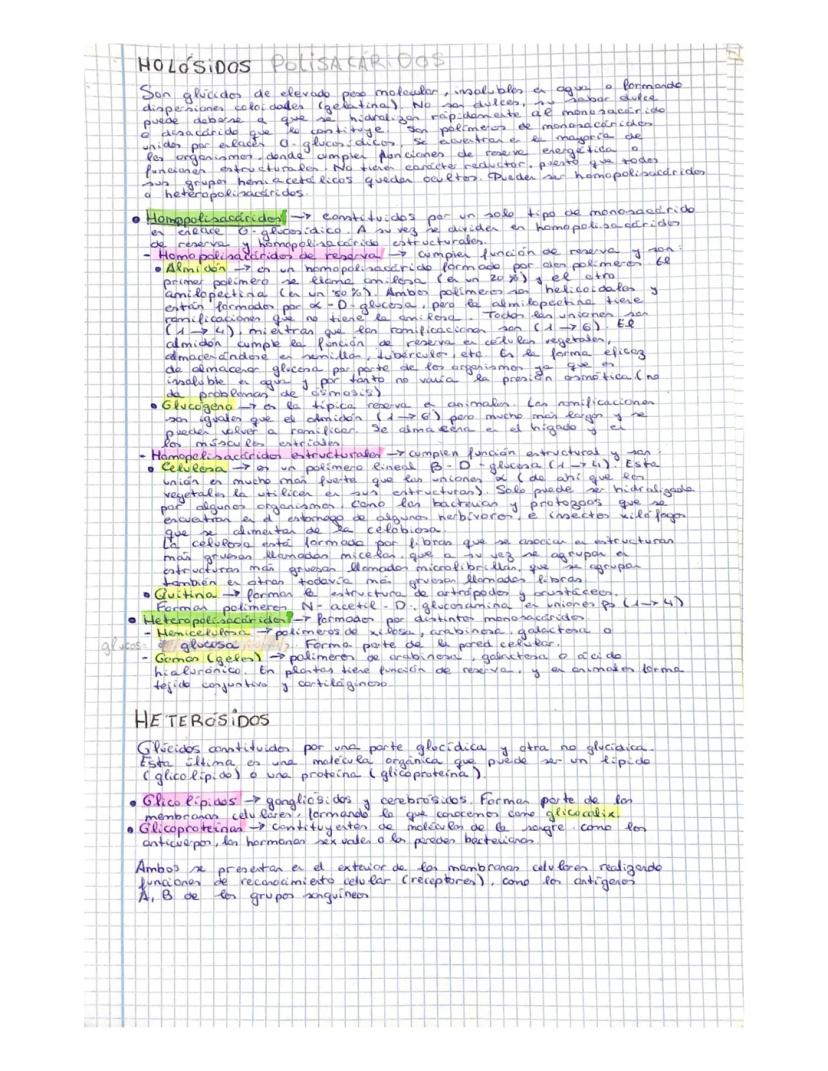 HOLÓSIDOS POLISACÁRIDOS
Son glúcidos de elevado peso molecular, insolubles en agua o formando
dispersiones coloidales (gelatina). No son dulces, su sabor dulce
puede deberse a que se hidralizan rápidamente al monosacárido
o disacárido que lo constituye. Son polímeros de monosacáridos
unidos por enlaces O-glucosídicos. Se encuentran en la mayoría de
los organismos, donde cumplen funciones de reserva energética o
funciones estructurales. No tienen carácter reductor, puesto que todos
sus grupos hemiacetálicos quedan ocultos. Pueden ser homopolisacáridos
o heteropolisacáridos.
• Homopolisacáridos → constituidos por un solo tipo de monosacárido
en enlace O-glucosídico. A su vez se dividen en homopolisacáridos
de reserva y homopolisacárido estructurales.
- Homopolisacáridos de reserva → cumplen función de reserva y son:
• Almidón → es un homopolisacárido formado por dos polímeros. El
primer polímero se llama amilosa (en un 20%) y el otro
amilopectina (en un 80%). Ambos polímeros son helicoidales y
están formados por α-D-glucosa, pero la almilopectina tiene
ramificaciones que no tiene la amilosa. Todas las uniones son
(1→4), mientras que las ramificaciones son (1→6). El
almidón cumple la función de reserva en células vegetales,
almacenándose en semillas, tubérculos, etc. Es la forma eficaz
de almacenar glucosa por parte de los organismos ya que es
insoluble en agua y por tanto no varía la presión osmótica (no
da problemas de ósmosis)
• Glucógeno → es la típica reserva en animales. Las ramificaciones
son iguales que el almidón (1→6) pero mucho más largas y se
pueden volver a ramificar. Se almacena en el hígado y en
los músculos estriados.
- Homopolisacáridos estructurales → cumplen función estructural y son:
• Celulosa → es un polímero lineal β-D-glucosa (1→4). Esta
unión es mucho más fuerte que las uniones α (de ahí que los
vegetales la utilicen en sus estructuras). Solo puede ser hidralizada
por algunos organismos como las bacterias y protozoos que se
encuentran en el estómago de algunos herbívoros, e insectos xilófagos
que se alimentan de la celobiosa.
La celulosa está formada por fibras que se asocian en estructuras
más gruesas llamadas micelas, que a su vez se agrupan en
estructuras más gruesas llamadas microfibrillas, que se agrupan
también en otras todavía más gruesas llamadas fibras.
• Quitina → forman la estructura de artrópodos y crustáceos.
Forman polímeros N-acetil-D-glucosamina en uniones β (1→4)
• Heteropolisacáridos → formados por distintos monosacáridos
- Hemicelulosa → polímeros de xilosa, arabinosa, galactosa o
glucos- glucosa Forma parte de la pared celular.
- Gomas (geles) → polímeros de arabinosa, galactosa o ácido
hialurónico. En plantas tiene función de reserva, y en animales forma
tejido conjuntivo y cartilaginoso.
HETERÓSIDOS
Glúcidos constituidos por una parte glucídica y otra no glucídica.
Esta última es una molécula orgánica que puede ser un lípido
(glicolípido) o una proteína (glicoproteína).
• Glicolípidos → gangliósidos y cerebrósidos. Forman parte de las
membranas celulares, formando lo que conocemos como glicocálix.
• Glicoproteínas → contituyentes de moléculas de la sangre como los
anticuerpos, las hormonas sexuales o las paredes bacterianas.
Ambos se presentan en el exterior de las membranas celulares realizando
funciones de reconocimiento celular (receptores), como los antígenos
A, B de los grupos sanguíneos